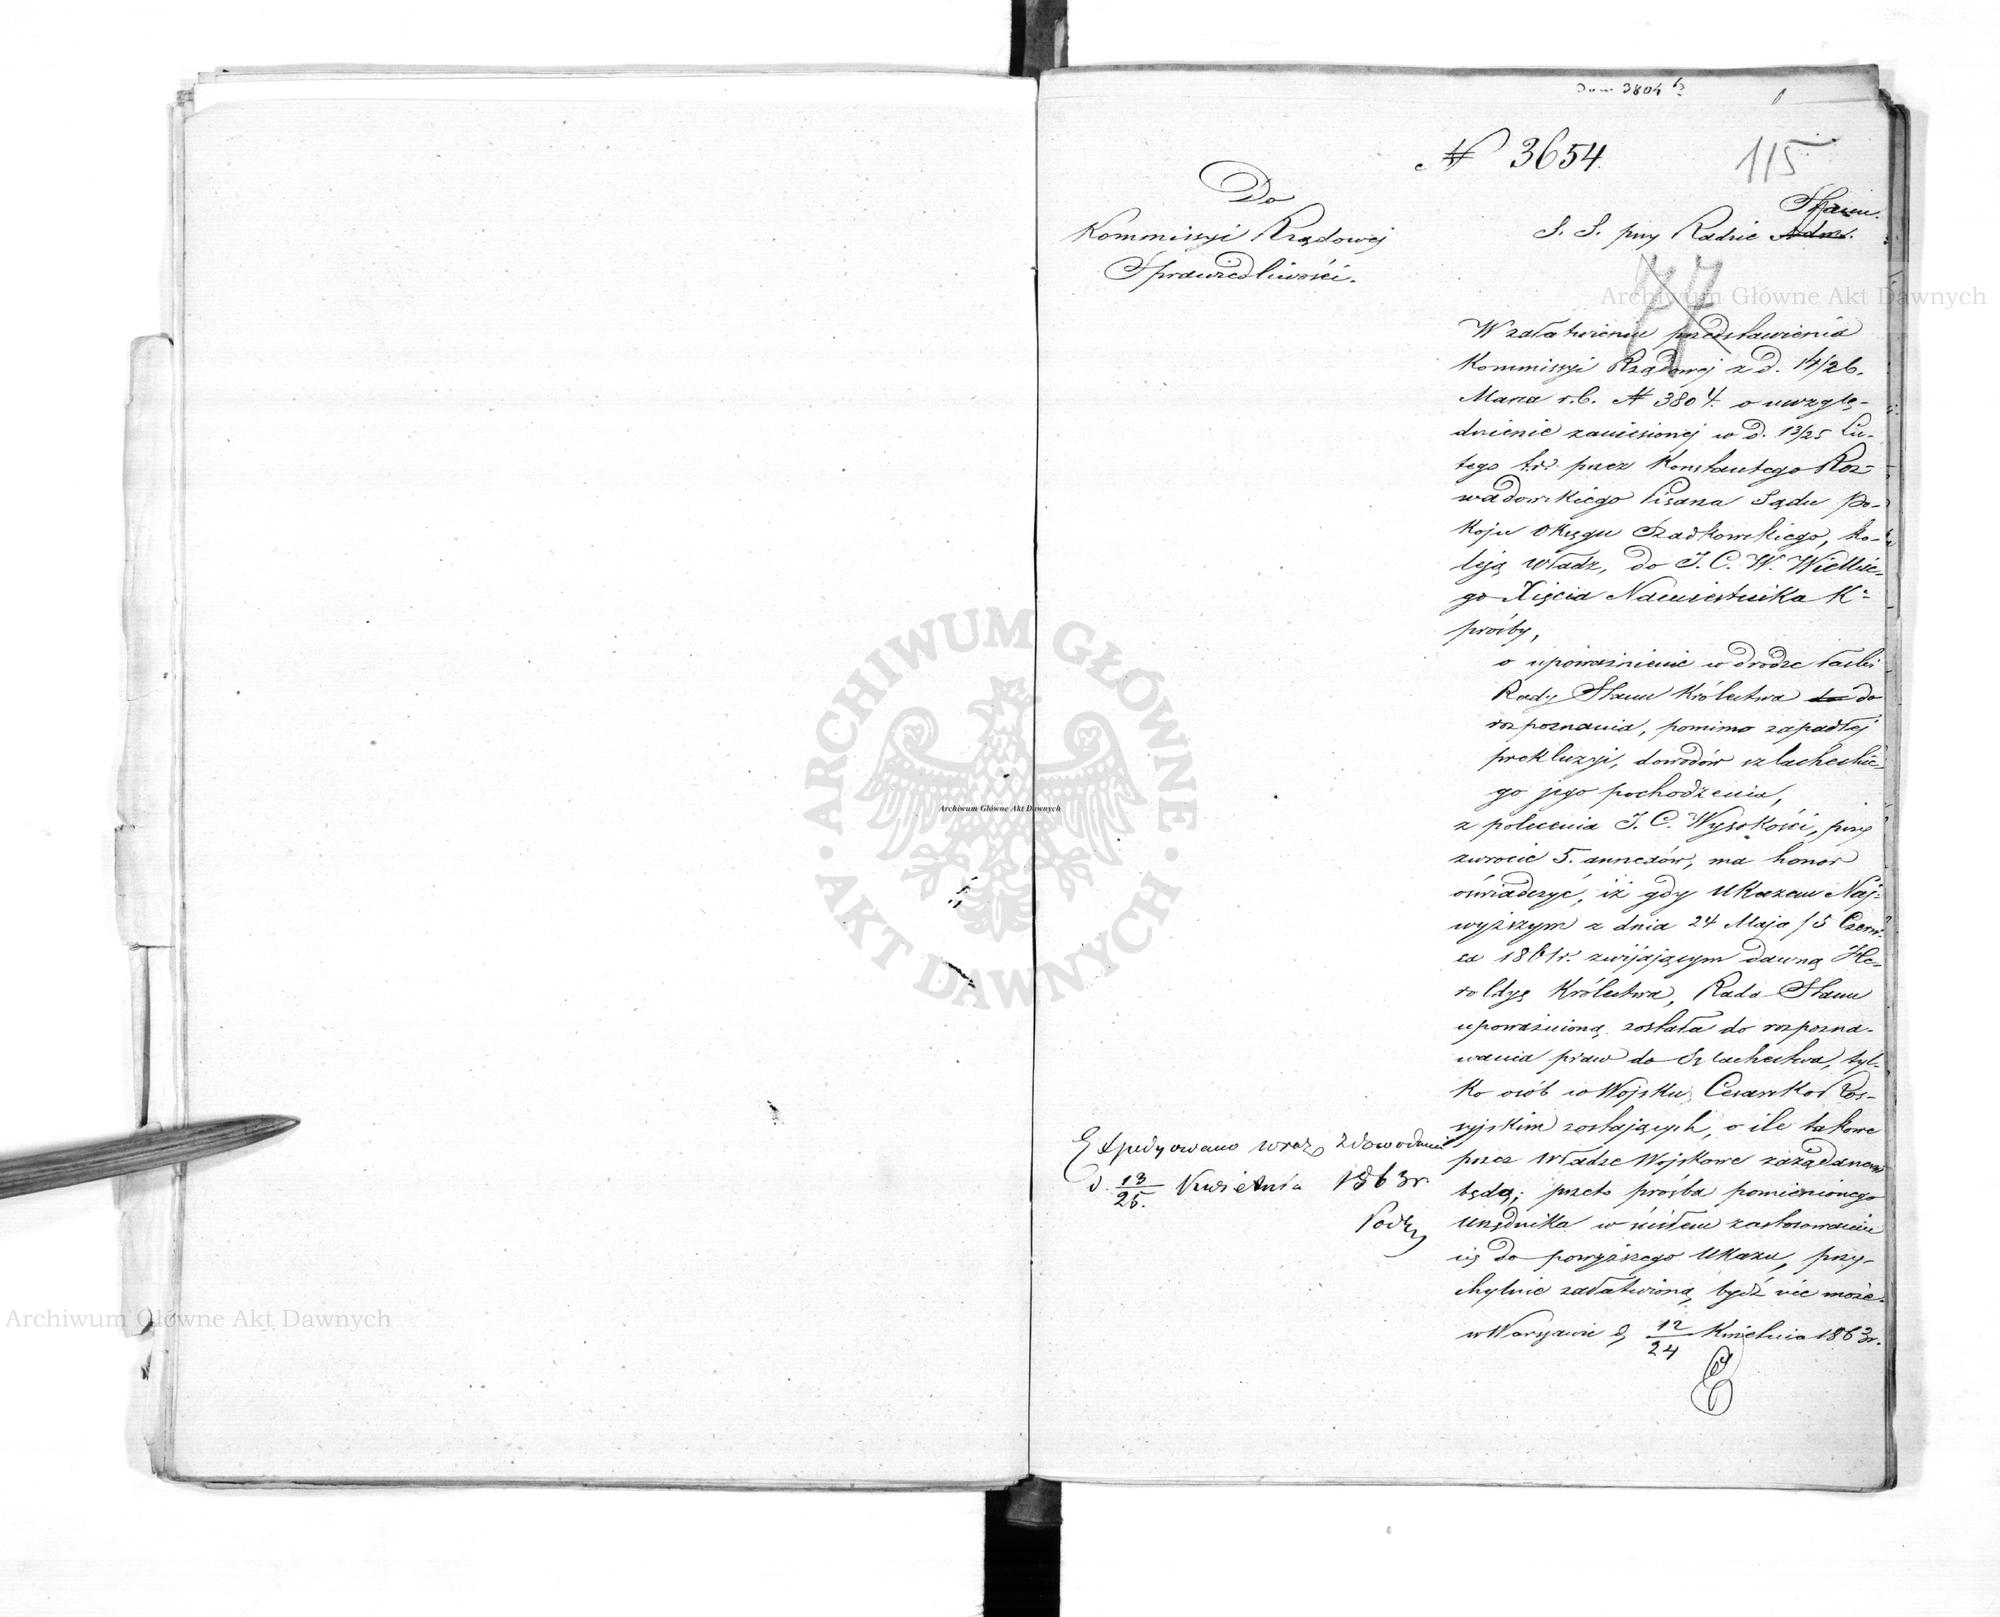 Dow 3804
№ 3654.
115
Do
Kommissyi Rządowej
Sprawiedliwości.
Stanu.
S. S. przy Radzie Adm.
77
W załatwieniu przedstawienia
Kommissyi Rządowej z d. 14/26.
Marca r.b. № 3804. o uwzglę-
dnienie zaniesionej w d. 13/25 Lu-
tego t.r. przez Konstantego Roz-
wadowskiego Pisarza Sądu Po-
koju Okręgu Szadkowskiego, ko-
leją władz, do J. C. W. Wielkie-
go Xięcia Namiestnika K.
prośby,
o upoważnienie w drodze łaski
Rady Stanu Królestwa do do
rozpoznania, pomimo zapadłej
prekluzyi, dowodów szlacheckie-
go jego pochodzenia,
z polecenia J. C. Wysokości, przy
zwrocie 5. annexów, ma honor
oświadczyć, iż gdy Ukazem Naj-
wyższym z dnia 24 Maja / 5 Czerw-
ca 1861 r. zwijającym dawną He-
roldyę Królestwa, Rada Stanu
upoważnioną została do rozpozna-
wania praw do Szlachectwa, tyl-
ko osób w Wojsku Cesarsko Ros-
syjskim zostających, o ile takowe
przez Władze Wojskowe zażądanem
będą; przeto prośba pomienionego
Urzędnika w ścisłem zastosowaniu
się do powyższego Ukazu, przy-
chylnie załatwioną, bydź nie może.
w Warszawie d. 12/24 Kwietnia 1863 r.
Expedyowano wraz z dowodami
d. 13/25. Kwietnia 1863 r
Archiwum Główne Akt Dawnych
Archiwum Główne Akt Dawnych
Archiwum Główne Akt Dawnych
ARCHIWUM GŁÓWNE · AKT DAWNYCH ·